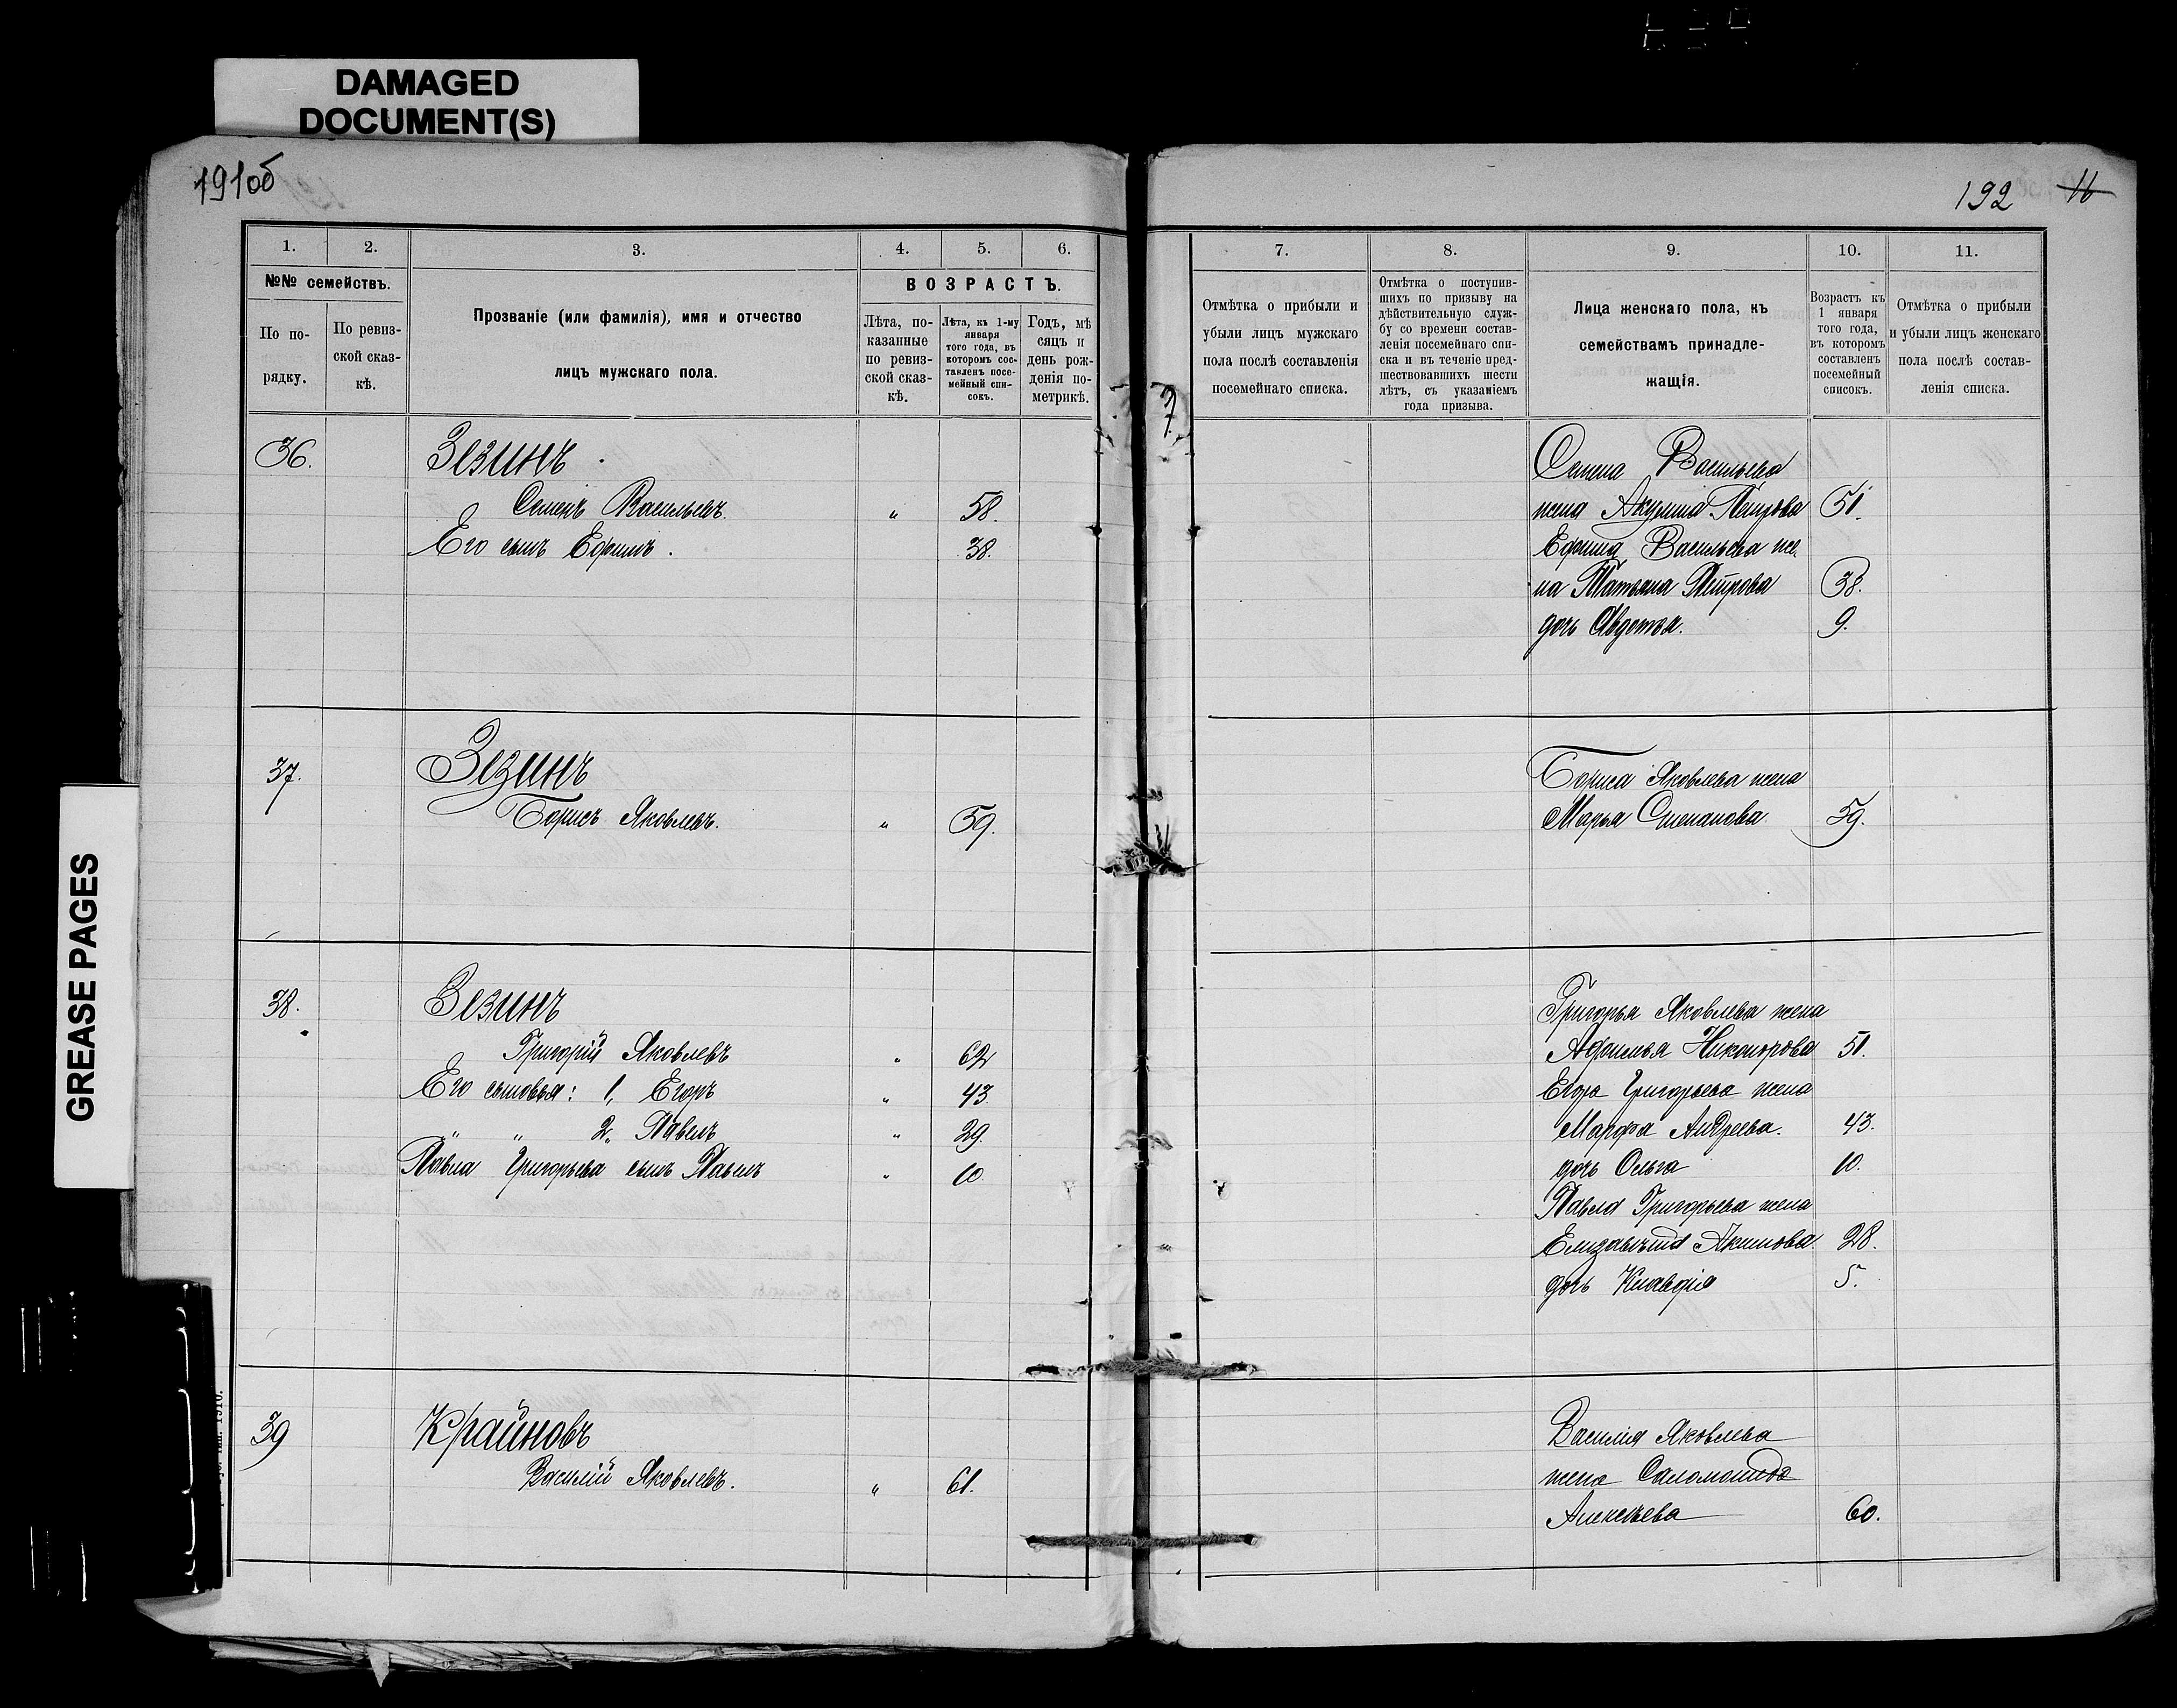 DAMAGED
DOCUMENT(S)
GREASE PAGES
191об
192 16
1. 2. 3. 4. 5. 6.
№№ семействъ.
По по-
рядку.
По ревиз-
ской сказ-
кѣ.
Прозваніе (или фамилія), имя и отчество
лицъ мужскаго пола.
ВОЗРАСТЪ.
Лѣта, по-
казанные
по ревиз-
ской сказ-
кѣ.
Лѣта, къ 1-му
января
того года, въ
которомъ сос-
тавленъ посе-
мейный спи-
сокъ.
Годъ, мѣ
сяцъ и
день рож-
денія по-
метрикѣ.
36. Зезинъ
Семенъ Васильевъ. „ 58.
Его сынъ Ефимъ. 38.
37. Зезинъ
Борисъ Яковлевъ. „ 59.
38. Зезинъ
Григорій Яковлевъ „ 62
Его сыновья: 1, Егоръ „ 43
„ „ 2, Павелъ „ 29.
Павла Григорьева сынъ Павелъ „ 10
39 Крайновъ
Василій Яковлевъ. „ 61.
7. 8. 9. 10. 11.
Отмѣтка о прибыли и
убыли лицъ мужского
пола послѣ составленія
посемейнаго списка.
Отмѣтка о поступив-
шихъ по призыву на
дѣйствительную служ-
бу со времени состав-
ленія посемейнаго спи-
ска и въ теченіе пред-
шествовавшихъ шести
лѣтъ, съ указаніемъ
года призыва.
Лица женскаго пола, къ
семействамъ принадле-
жащія.
Возрастъ къ
1 января
того года,
въ которомъ
составленъ
посемейный
списокъ.
Отмѣтка о прибыли
и убыли лицъ женскаго
пола послѣ состав-
ленія списка.
Семена Васильева
жена Акулина Петрова 51.
Ефима Васильева же-
на Татьяна Петрова 38.
дочь Авдотья. 9.
Бориса Яковлева жена
Марья Степанова. 59.
Григорья Яковлева жена
Афимья Никонорова 51.
Егора Григорьева жена
Марфа Андреева. 43.
дочь Ольга 10.
Павла Григорьева жена
Елизавѣта Акимова 28.
дочь Клавдія 5.
Василія Яковлева
жена Саломонида
Алексѣева 60.